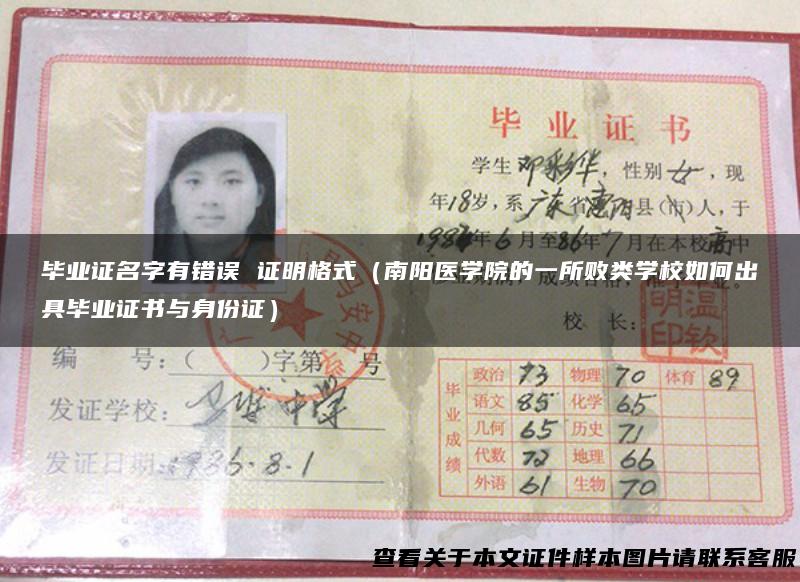 毕业证书
学生邓彩华，性别女，现
年18岁，系广东省惠阳县(市)人，于
1984年6月至86年7月在本校高中
毕业证名字有错误 证明格式（南阳医学院的一所败类学校如何出
具毕业证书与身份证）
校 长：
温钦明印
编 号：（ ）字第 号
发证学校： 中学
发证日期：1986.8.1
毕业成绩
政治 73 物理 70 体育 89
语文 85 化学 65
几何 65 历史 71
代数 72 地理 66
外语 61 生物 70
查看关于本文证件样本图片请联系客服